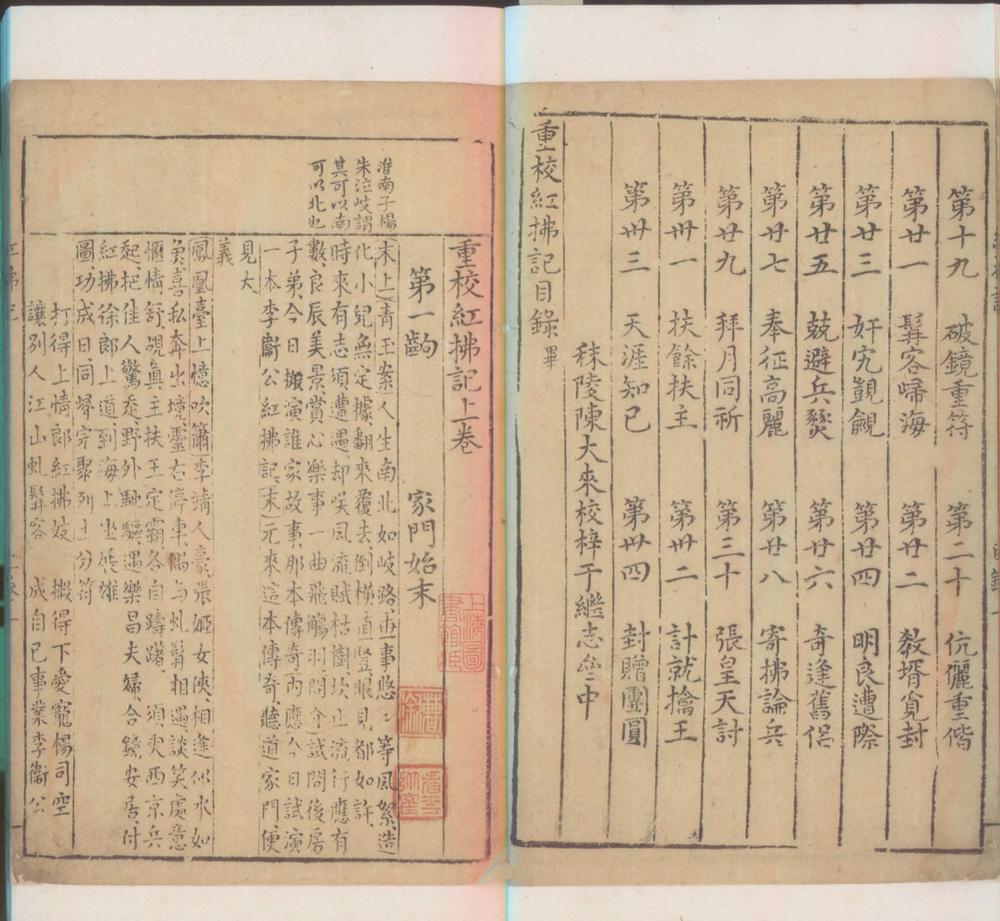 第十九 破鏡重符 第二十 伉儷重偕
第廿一 髯客歸海 第廿二 教壻覓封
第廿三 奸宄覬覦 第廿四 明良遭際
第廿五 兢避兵燹 第廿六 奇逢舊侶
第廿七 奉征高麗 第廿八 寄拂論兵
第廿九 拜月同祈 第三十 張皇天討
第丗一 扶餘扶主 第丗二 計就擒王
第丗三 天涯知己 第丗四 封贈團圓
秣陵陳大來校梓于繼志齋中
重校紅拂記目錄畢
重校紅拂記上卷
第一齣 家門始末
淮南子楊
朱泣岐謂
其可以南
可以北也
末上青玉案人生南北如岐路再事悠〻等風絮造
化小兒無定據翻來覆去倒橫直豎眼見都如許
時來有志須遭遇却咲風流賦枯樹坎止流行應有
數良辰美景賞心樂事一曲飛觴羽問介試問後房
子弟今日搬演誰家故事那本傳奇內應介今日試演
一本李衛公紅拂記末元來這本傳奇聽道家門便
見大
義
鳳凰臺上憶吹簫李靖人豪張姬女俠相逢似水如
魚喜私奔出境靈右停車偶与虬髯相遇談笑處意
愜情舒覘真主扶王定霸各自躊躇 須臾西京兵
起把佳人驚委野外馳驅遇樂昌夫婦合鏡安居付
紅拂徐郎上道到海上坐㨗雄
圖功成日同歸完聚列土分符
打得上情郎紅拂妓 搬得下愛寵楊司空
讓別人江山虬髯客 成自己事業李衛公
上海圖
書館臧